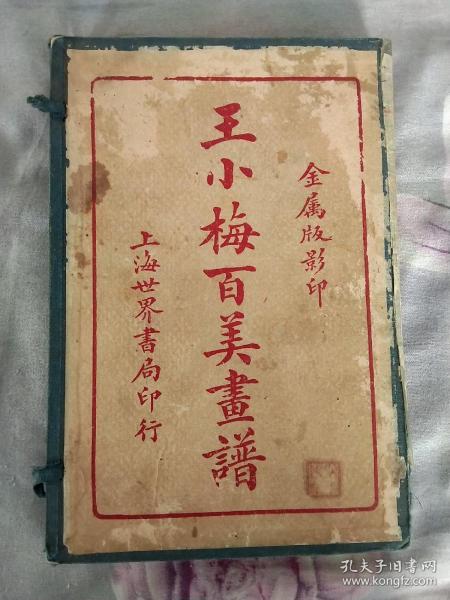 金属版影印
王小梅百美畫譜
上海世界書局印行
孔夫子旧书网
www.kongfz.com